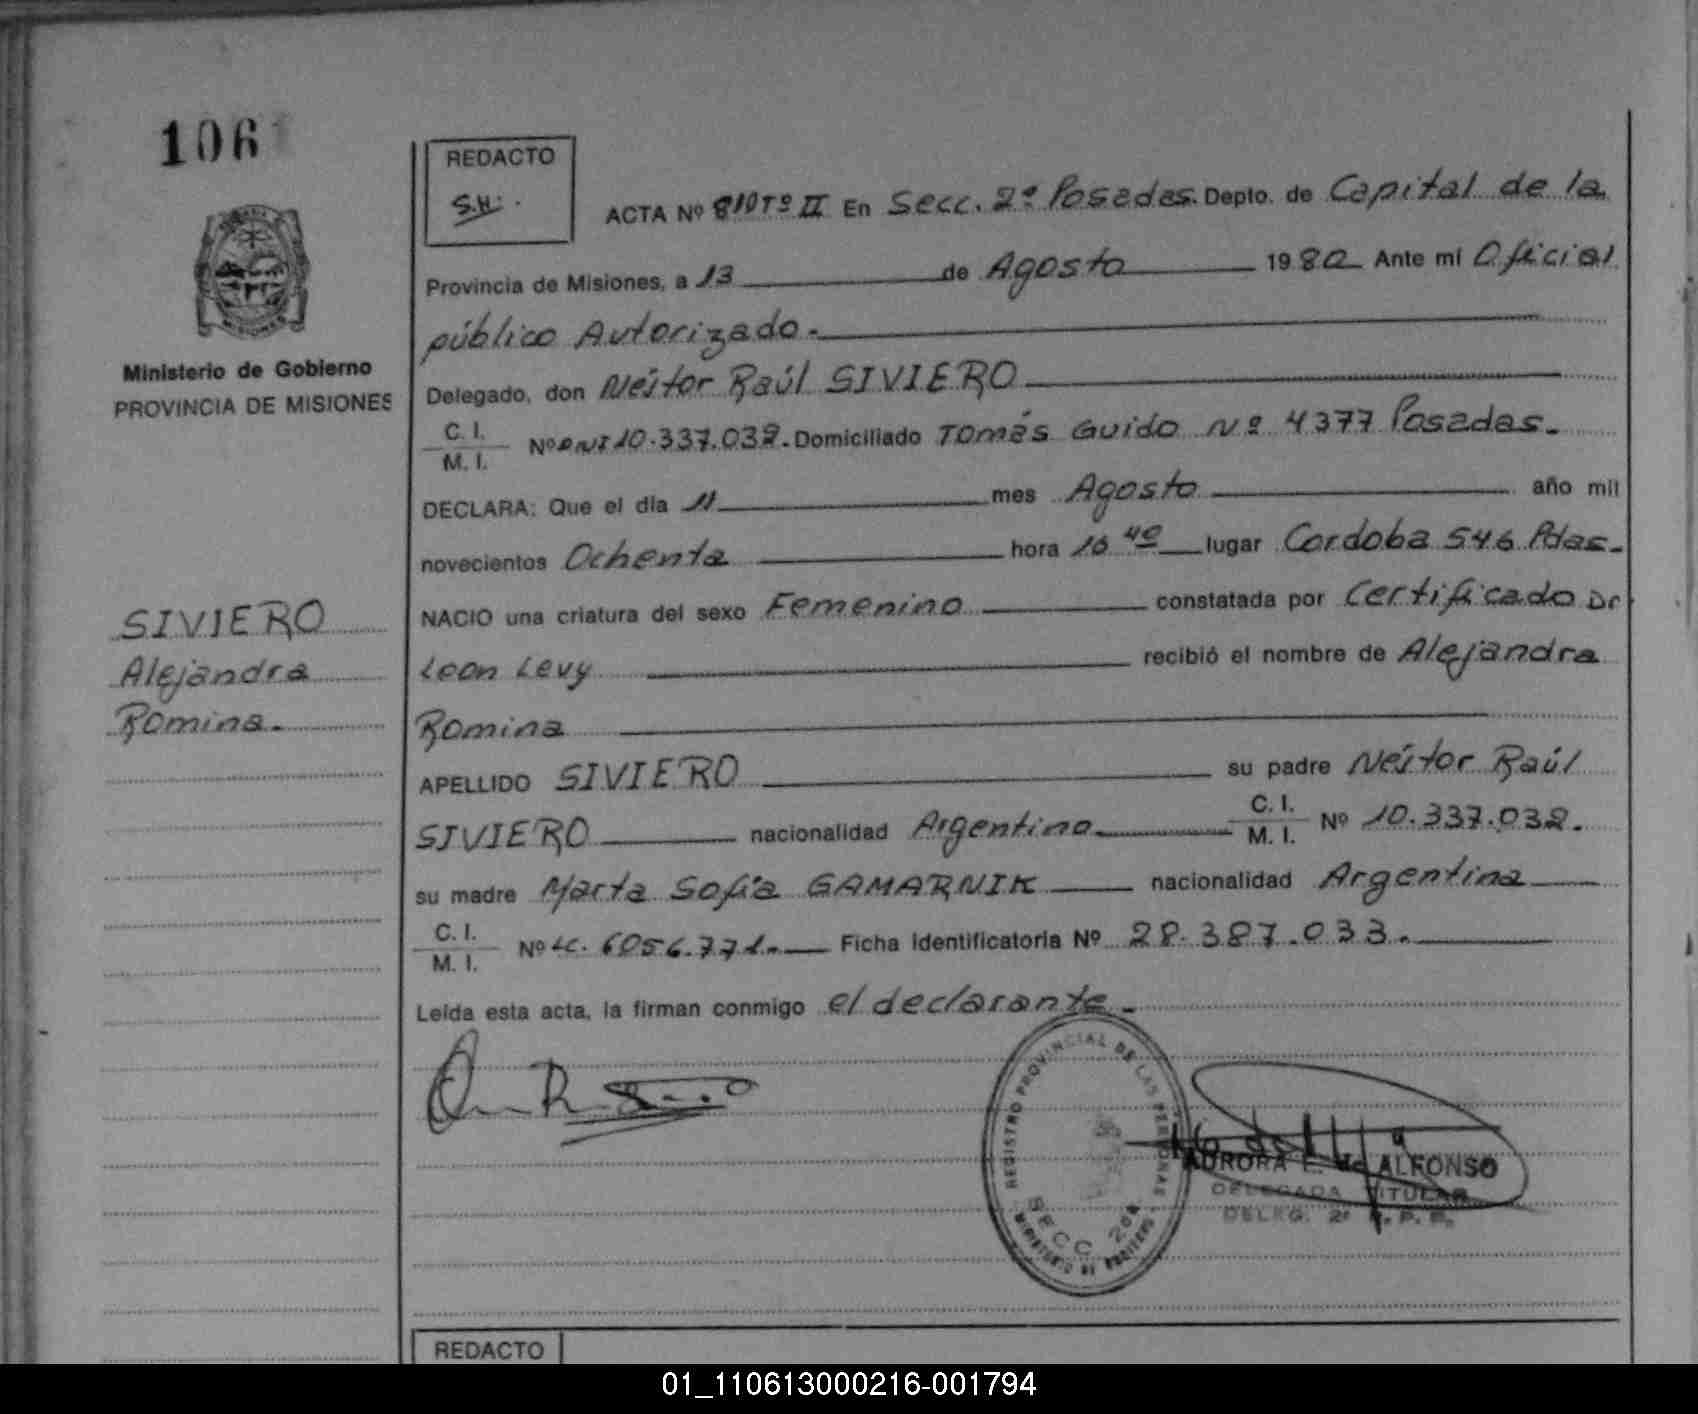 106
REDACTO
S.H.
ACTA Nº 810 Tº II En Secc. 2ª Posadas. Depto. de Capital de la
Provincia de Misiones, a 13 de Agosto 1980 Ante mí Oficial
público Autorizado.
Delegado, don Néstor Raúl SIVIERO
C. I.
M. I.
Nº DNI 10.337.038. Domiciliado Tomás Guido Nº 4377 Posadas.
DECLARA: Que el día 11 mes Agosto año mil
novecientos Ochenta hora 16 40 lugar Cordoba 546 Pdas.
NACIO una criatura del sexo Femenino constatada por Certificado Dr
Leon Levy recibió el nombre de Alejandra
Romina
APELLIDO SIVIERO su padre Néstor Raúl
SIVIERO nacionalidad Argentino C. I. M. I. Nº 10.337.038.
su madre Marta Sofía GAMARNIK nacionalidad Argentina
C. I.
M. I.
Nº LC. 6056.771. Ficha Identificatoria Nº 28.387.033.
Leída esta acta, la firman conmigo el declarante.
Ministerio de Gobierno
PROVINCIA DE MISIONES
SIVIERO
Alejandra
Romina.
REGISTRO PROVINCIAL DE LAS PERSONAS
SECC 2da
MINISTERIO DE GOBIERNO
AURORA de ALFONSO
DELEGADA TITULAR
DELEG. 2ª R. P. P.
REDACTO
01_110613000216-001794